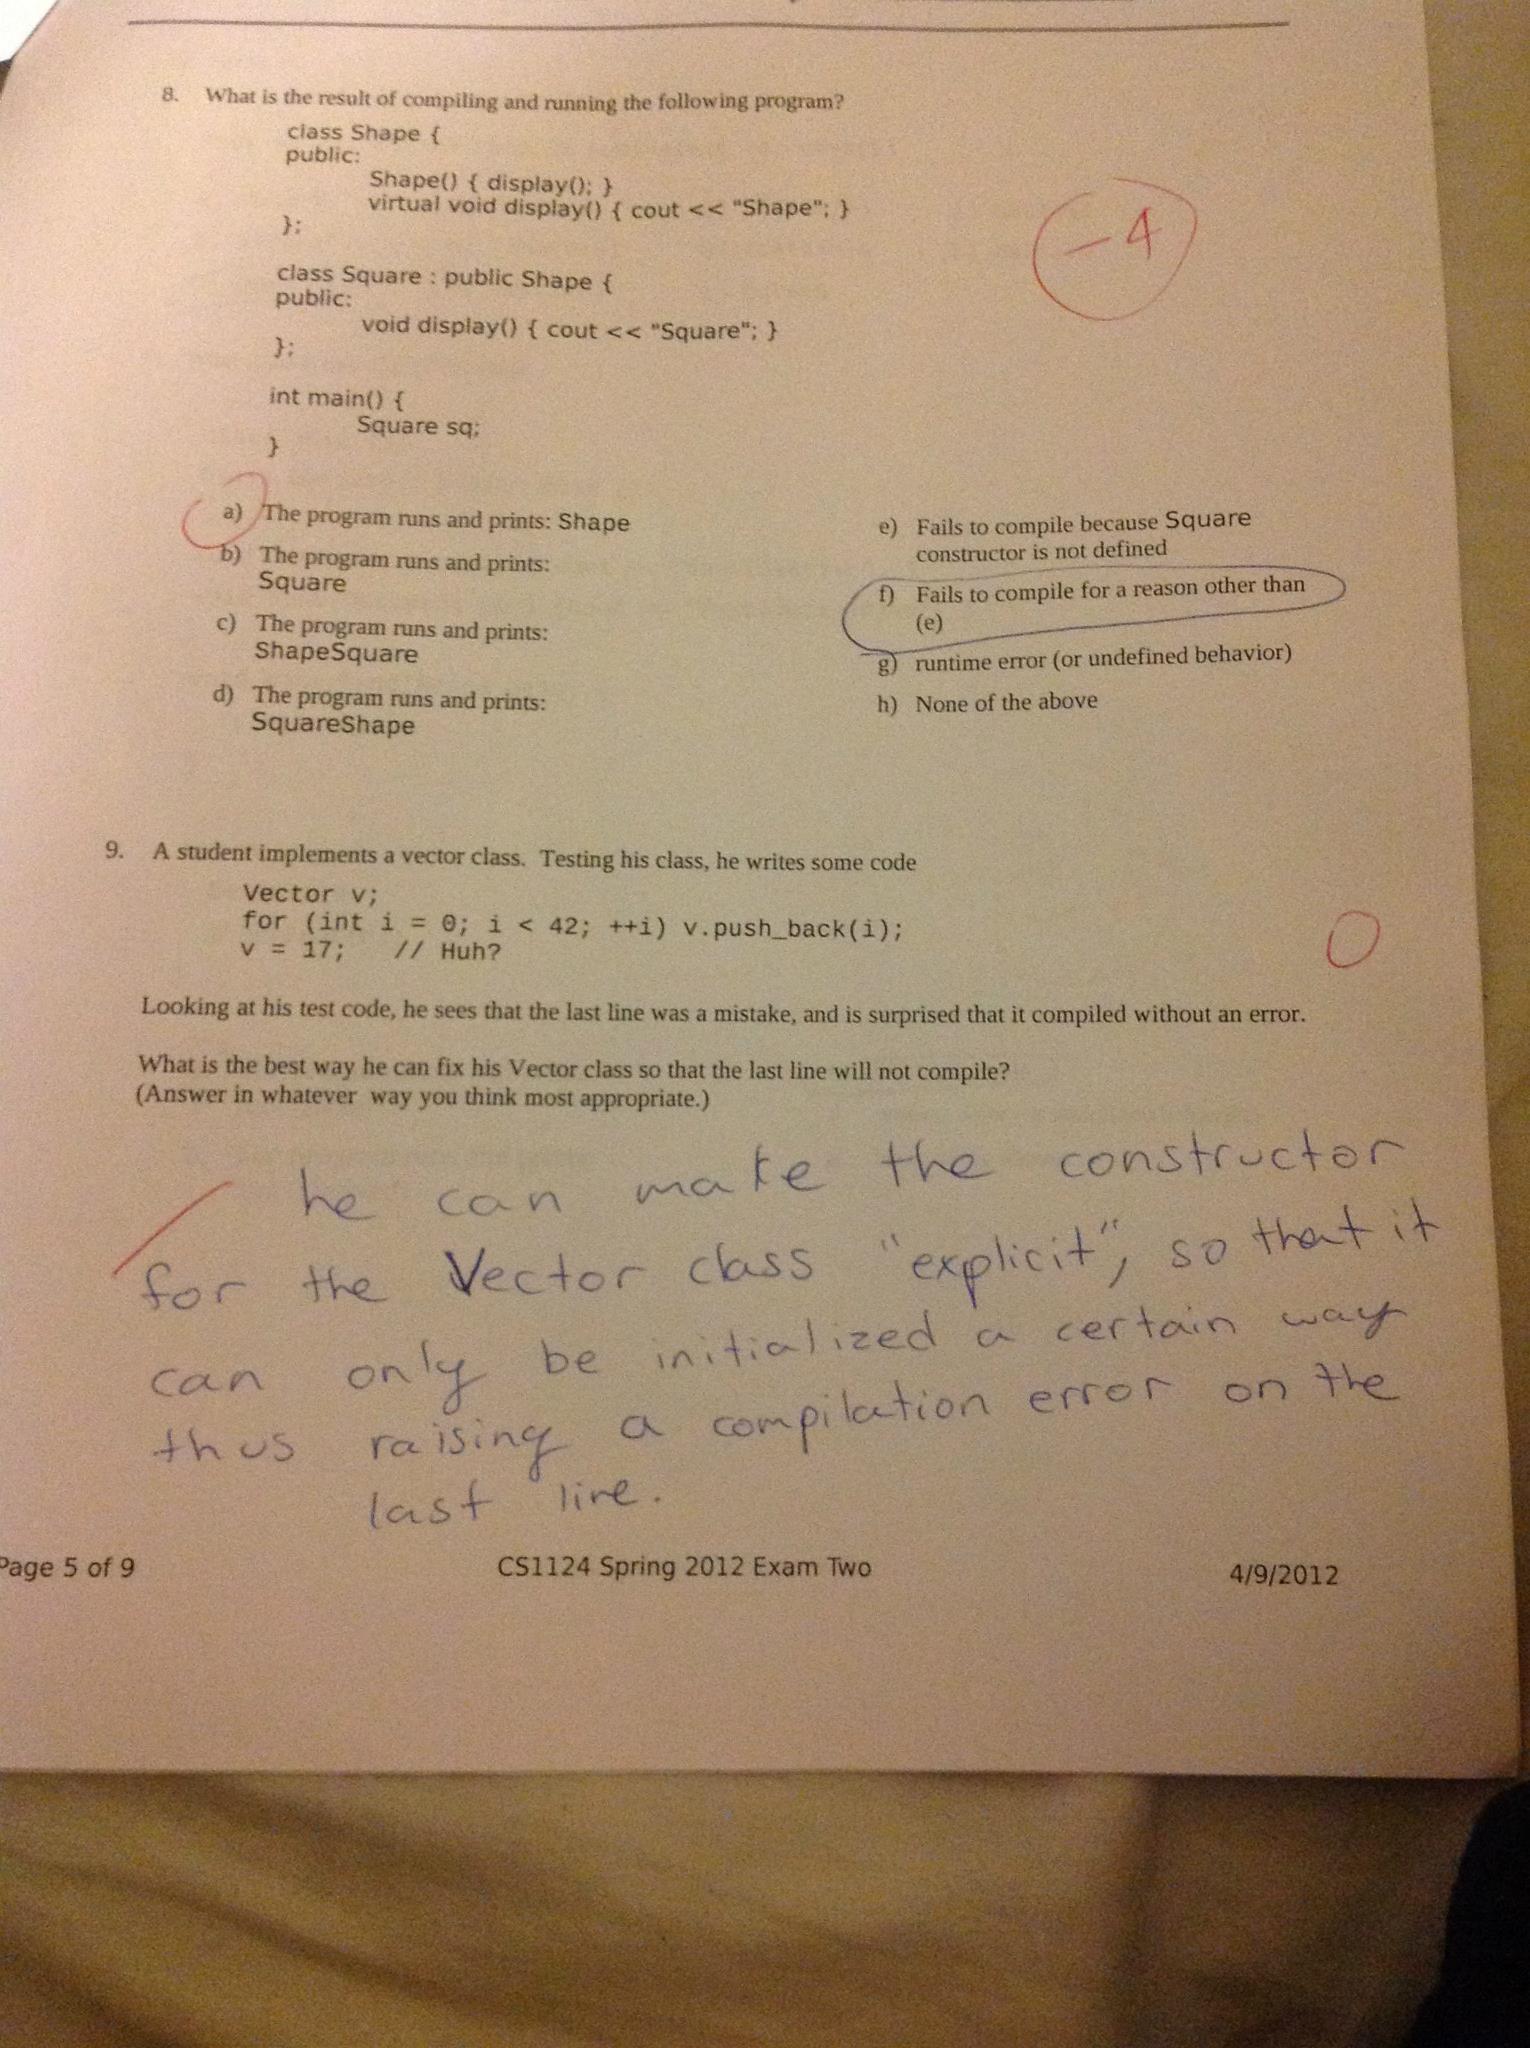 8. What is the result of compiling and running the following program?
class Shape {
public:
Shape() { display(); }
virtual void display() { cout << "Shape"; }
};
class Square : public Shape {
public:
void display() { cout << "Square"; }
};
int main() {
Square sq;
}
-4
a) The program runs and prints: Shape
b) The program runs and prints:
Square
c) The program runs and prints:
ShapeSquare
d) The program runs and prints:
SquareShape
e) Fails to compile because Square
constructor is not defined
f) Fails to compile for a reason other than
(e)
g) runtime error (or undefined behavior)
h) None of the above
9. A student implements a vector class. Testing his class, he writes some code
Vector v;
for (int i = 0; i < 42; ++i) v.push_back(i);
v = 17; // Huh?
0
Looking at his test code, he sees that the last line was a mistake, and is surprised that it compiled without an error.
What is the best way he can fix his Vector class so that the last line will not compile?
(Answer in whatever way you think most appropriate.)
he can make the constructor
for the Vector class "explicit", so that it
can only be initialized a certain way
thus raising a compilation error on the
last line.
Page 5 of 9 CS1124 Spring 2012 Exam Two 4/9/2012